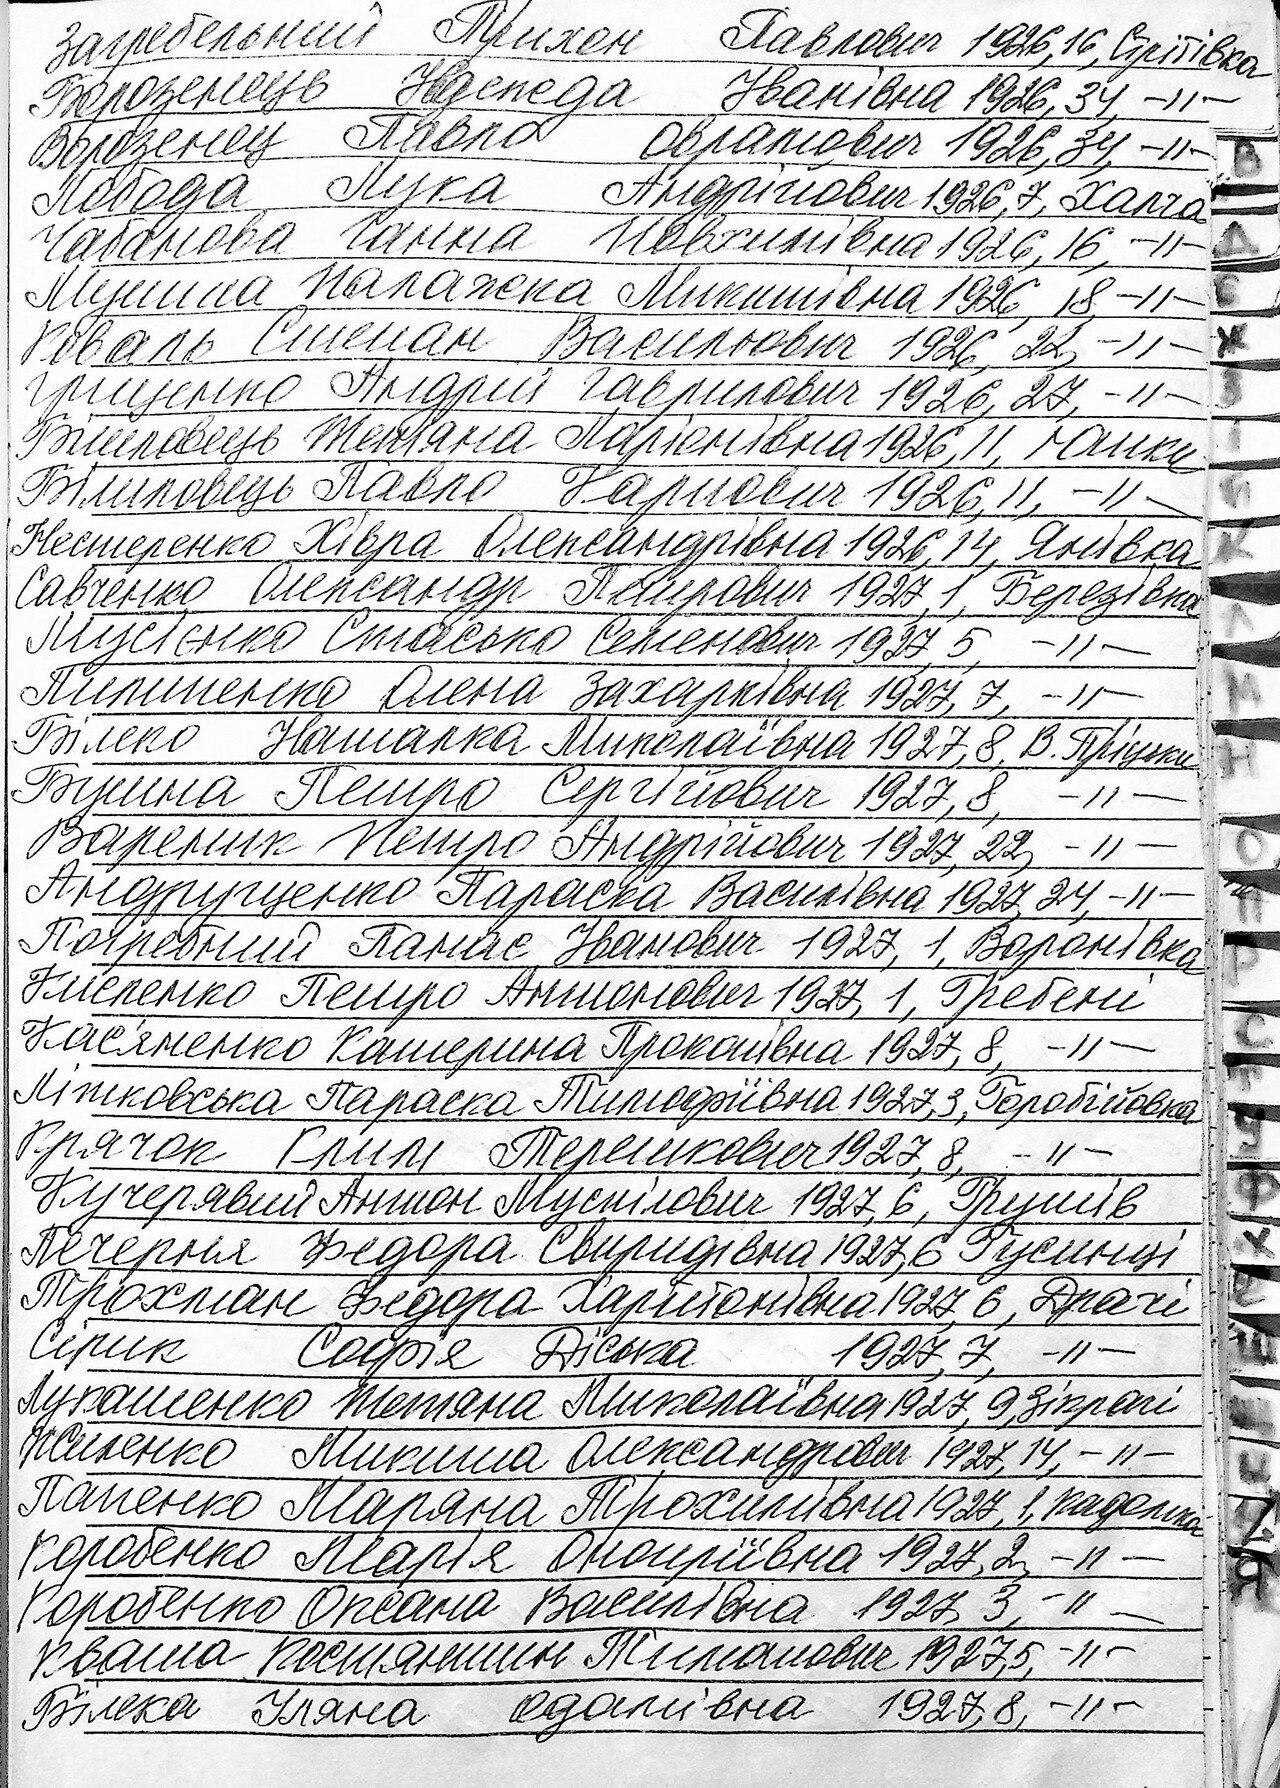 Загребельний Трихон Павлович 1926, 16, Стрітівка
Борозенець Надежда Іванівна 1926, 34, -//-
Борозенец Павло Оврамович 1926, 34, -//-
Лобода Лука Андрійович 1926, 7, Халча
Чабанова Ганна Йовхимівна 1926, 16, -//-
Мушта Палажка Микитівна 1926, 18, -//-
Коваль Степан Васильович 1926, 22, -//-
Грищенко Андрій Гаврилович 1926, 27, -//-
Білиловець Тетяна Ларіонівна 1926, 11, Юшки
Білиловець Павло Карпович 1926, 11, -//-
Нестеренко Хівра Олександрівна 1926, 14, Янівка
Савченко Олександр Петрович 1927, 1, Березівка
Мусієнко Стасько Семенович 1927, 5, -//-
Пилипенко Олена Захарківна 1927, 7, -//-
Білеко Наталка Миколаївна 1927, 8, В. Пріцьки
Бутна Петро Сергійович 1927, 8, -//-
Вареник Петро Андрійович 1927, 22, -//-
Андрущенко Параска Василівна 1927, 24, -//-
Погребний Панас Іванович 1927, 1, Воронівка
Кисленко Петро Антонович 1927, 1, Гребені
Касяненко Катерина Прокопівна 1927, 8, -//-
Літковська Параска Тимофіївна 1927, 3, Горобіївка
Крячок Клим Терешкович 1927, 8, -//-
Кучерявий Антон Мусійович 1927, 6, Грушів
Печерня Федора Свиридівна 1927, 6 Гусинці
Трохман Федора Харитонівна 1927, 6, Драчі
Сірик Софія Діська 1927, 7, -//-
Лукашенко Тетяна Миколаївна 1927, 9, Зікрачі
Жиленко Микита Олександрович 1927, 14, -//-
Папенко Маряна Трохимівна 1927, 1, Кадомка
Коробенко Марія Оноприївна 1927, 2, -//-
Коробенко Оксана Василівна 1927, 3, -//-
Кваша Костянтин Тимонович 1927, 5, -//-
Білека Уляна Адамівна 1927, 8, -//-